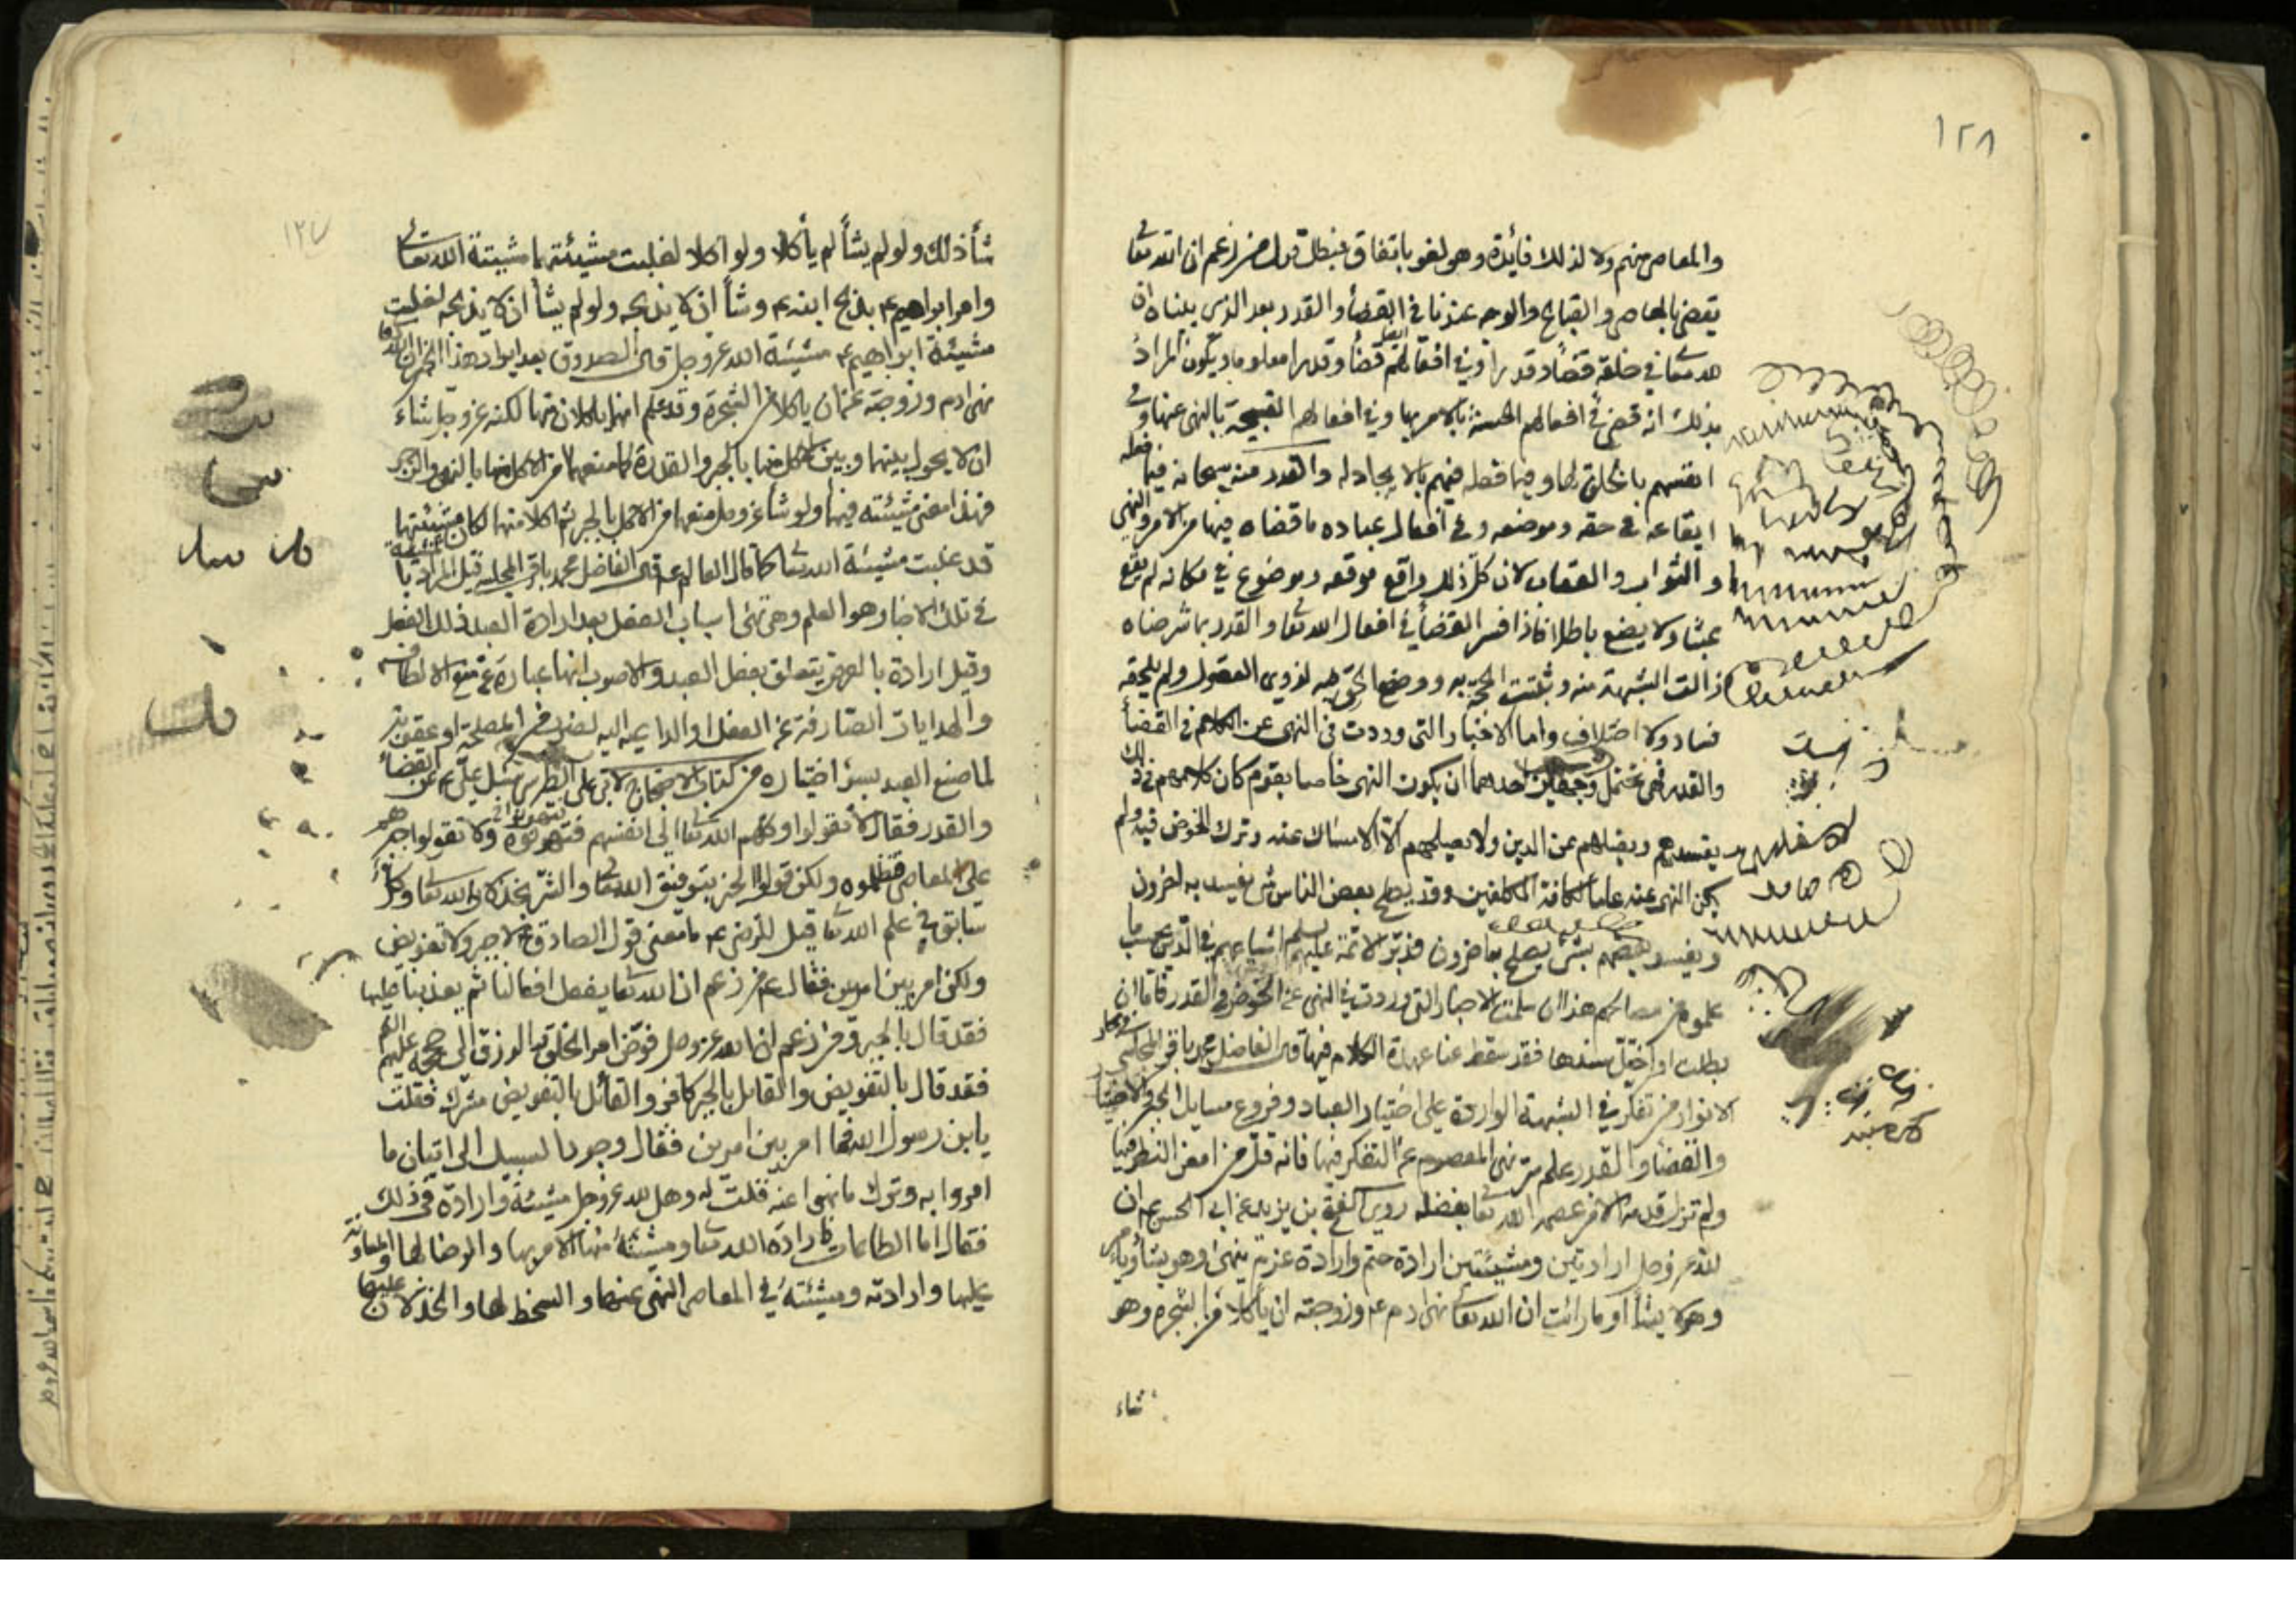 ١٢٨
والمعاصي منهم ولا لذلك فائدة وهو لغو باتفاق فبطل قول من زعم ان الله تعا
يقضي بالمعاصي والقبايح والوجه عندنا في القضأ والقدر بعد الذي بيناه ان
لله تعا في خلقه قضأ وقدرا وفي افعالهم ايضا قضأ وقدرا معلوما ويكون المراد
بذلك انه قضى في افعالهم الحسنة بالامر بها وفي افعالهم القبيحة بالنهي عنها وفي
انفسهم بالخلق لها وفيما فعله فيهم بالايجاد له والقدر منه سبحانه فيما فعله
ايقاعه في حقه وموضعه وفي افعال عباده ما قضاه فيها من الامر والنهي
والثواب والعقاب لان كل ذلك واقع موقعه وموضوع في مكانه لم يقع
عبثا ولا يضع باطلا فاذا فسر القضأ في افعال الله تعا والقدر بما شرحناه
زالت الشبهة منه وثبتت الحجة به ووضح الحق فيه لذوي العقول ولم يلحقه
فساد ولا اختلاف واما الاخبار التي وردت في النهي عن الكلام في القضأ
والقدر فهي تحتمل وجهين احدهما ان يكون النهي خاصا بقوم كان كلامهم في ذلك
يفسدهم ويضلهم عن الدين ولا يصلحهم الا الامساك عنه وترك الخوض فيه ولم
يكن النهي عنه عاما لكافة المكلفين وقد يصلح بعض الناس بشئ يفسد به اخرون
ويفسد بعضهم بشئ يصلح به اخرون فدبر الائمة عليهم السلم اشياعهم في الدين بحسب ما
علموه من مصالحهم هذا ان سلمت الاخبار التي وردت في النهي عن الخوض في القدر فاما ان
بطلت او اختل سندها فقد سقط عنا عهدة الكلام فيها قال الفاضل محمد باقر المجلسي في بحار
الانوار من تفكر في الشبهة الواردة على اختيار العباد وفروع مسايل الجبر والاختيار
والقضأ والقدر علم سر نهي المعصوم عن التفكر فيها فانه قل من امعن النظر فيها
ولم تزل قدمه الا من عصمه الله تعا بفضله روى الفتح بن يزيد عن ابي الحسن ع ان
لله عز وجل ارادتين ومشيئتين ارادة حتم وارادة عزم ينهى وهو يشأ ويأمر
وهو لا يشأ او ما رأيت ان الله تعا نهى ادم ع وزوجته ان يأكلا من الشجرة وهو
شاء
١٢٧
شأ ذلك ولو لم يشأ لم يأكلا ولو اكلا لغلبت مشيئتهما مشيئة الله تعا
وامر ابراهيم ع بذبح ابنه ع وشأ ان لا يذبحه ولو لم يشأ ان لا يذبحه لغلبت
مشيئة ابراهيم ع مشيئة الله عز وجل قال الصدوق بعد ايراد هذا الخبر ان الله تعا
نهى ادم وزوجته عن ان ياكلا من الشجرة وقد علم انهما ياكلان منها لكنه عز وجل شاء
ان لا يحول بينهما وبين الاكل منها بالجبر والقدرة كما منعهما من الاكل منها بالنهي والزجر
فهذا معنى مشيئته فيهما ولو شأ عز وجل منعهما من الاكل بالجبر ثم اكلا منها لكان مشيئتهما
قد غلبت مشيئة الله تعا كما قال العالم ع قال الفاضل محمد باقر المجلسي قيل المراد بالمشيئة
في تلك الاخبار هو العلم وهي تهئ اسباب الفعل بعد ارادة العبد ذلك الفعل
وقيل ارادة بالعرض يتعلق بفعل العبد والاصوب انها عبارة عن منع الالطاف
والهدايات الصارفة عن الفعل او الداعية اليه لضرب من المصلحة او عقوبة
لما صنع العبد بسؤ اختياره من كتاب الاحتجاج لابي علي الطبرسي سئل علي ع عن القضأ
والقدر فقال لا تقولوا وكلهم الله تعا الى انفسهم فتوهنوه ولا تقولوا جبرهم
على المعاصي فتظلموه ولكن قولوا الخير بتوفيق الله تعا والشر بخذلان الله تعا وكل
سابق في علم الله تعا قيل للرضي ع ما معنى قول الصادق ع لا جبر ولا تفويض
ولكن امر بين امرين فقال ع من زعم ان الله تعا يفعل افعالنا ثم يعذبنا عليها
فقد قال بالجبر ومن زعم ان الله عز وجل فوض امر الخلق والرزق الى حججه عليهم السلم
فقد قال بالتفويض والقائل بالجبر كافر والقائل بالتفويض مشرك فقلت
يابن رسول الله فما امر بين امرين فقال وجود السبيل الى اتيان ما
امروا به وترك ما نهوا عنه فقلت له وهل لله عز وجل مشيئة وارادة في ذلك
فقال اما الطاعات فارادة الله تعا ومشيئته فيها الامر بها والرضا لها والمعاونة
عليها وارادته ومشيئته في المعاصي النهي عنها والسخط لها والخذلان عليها